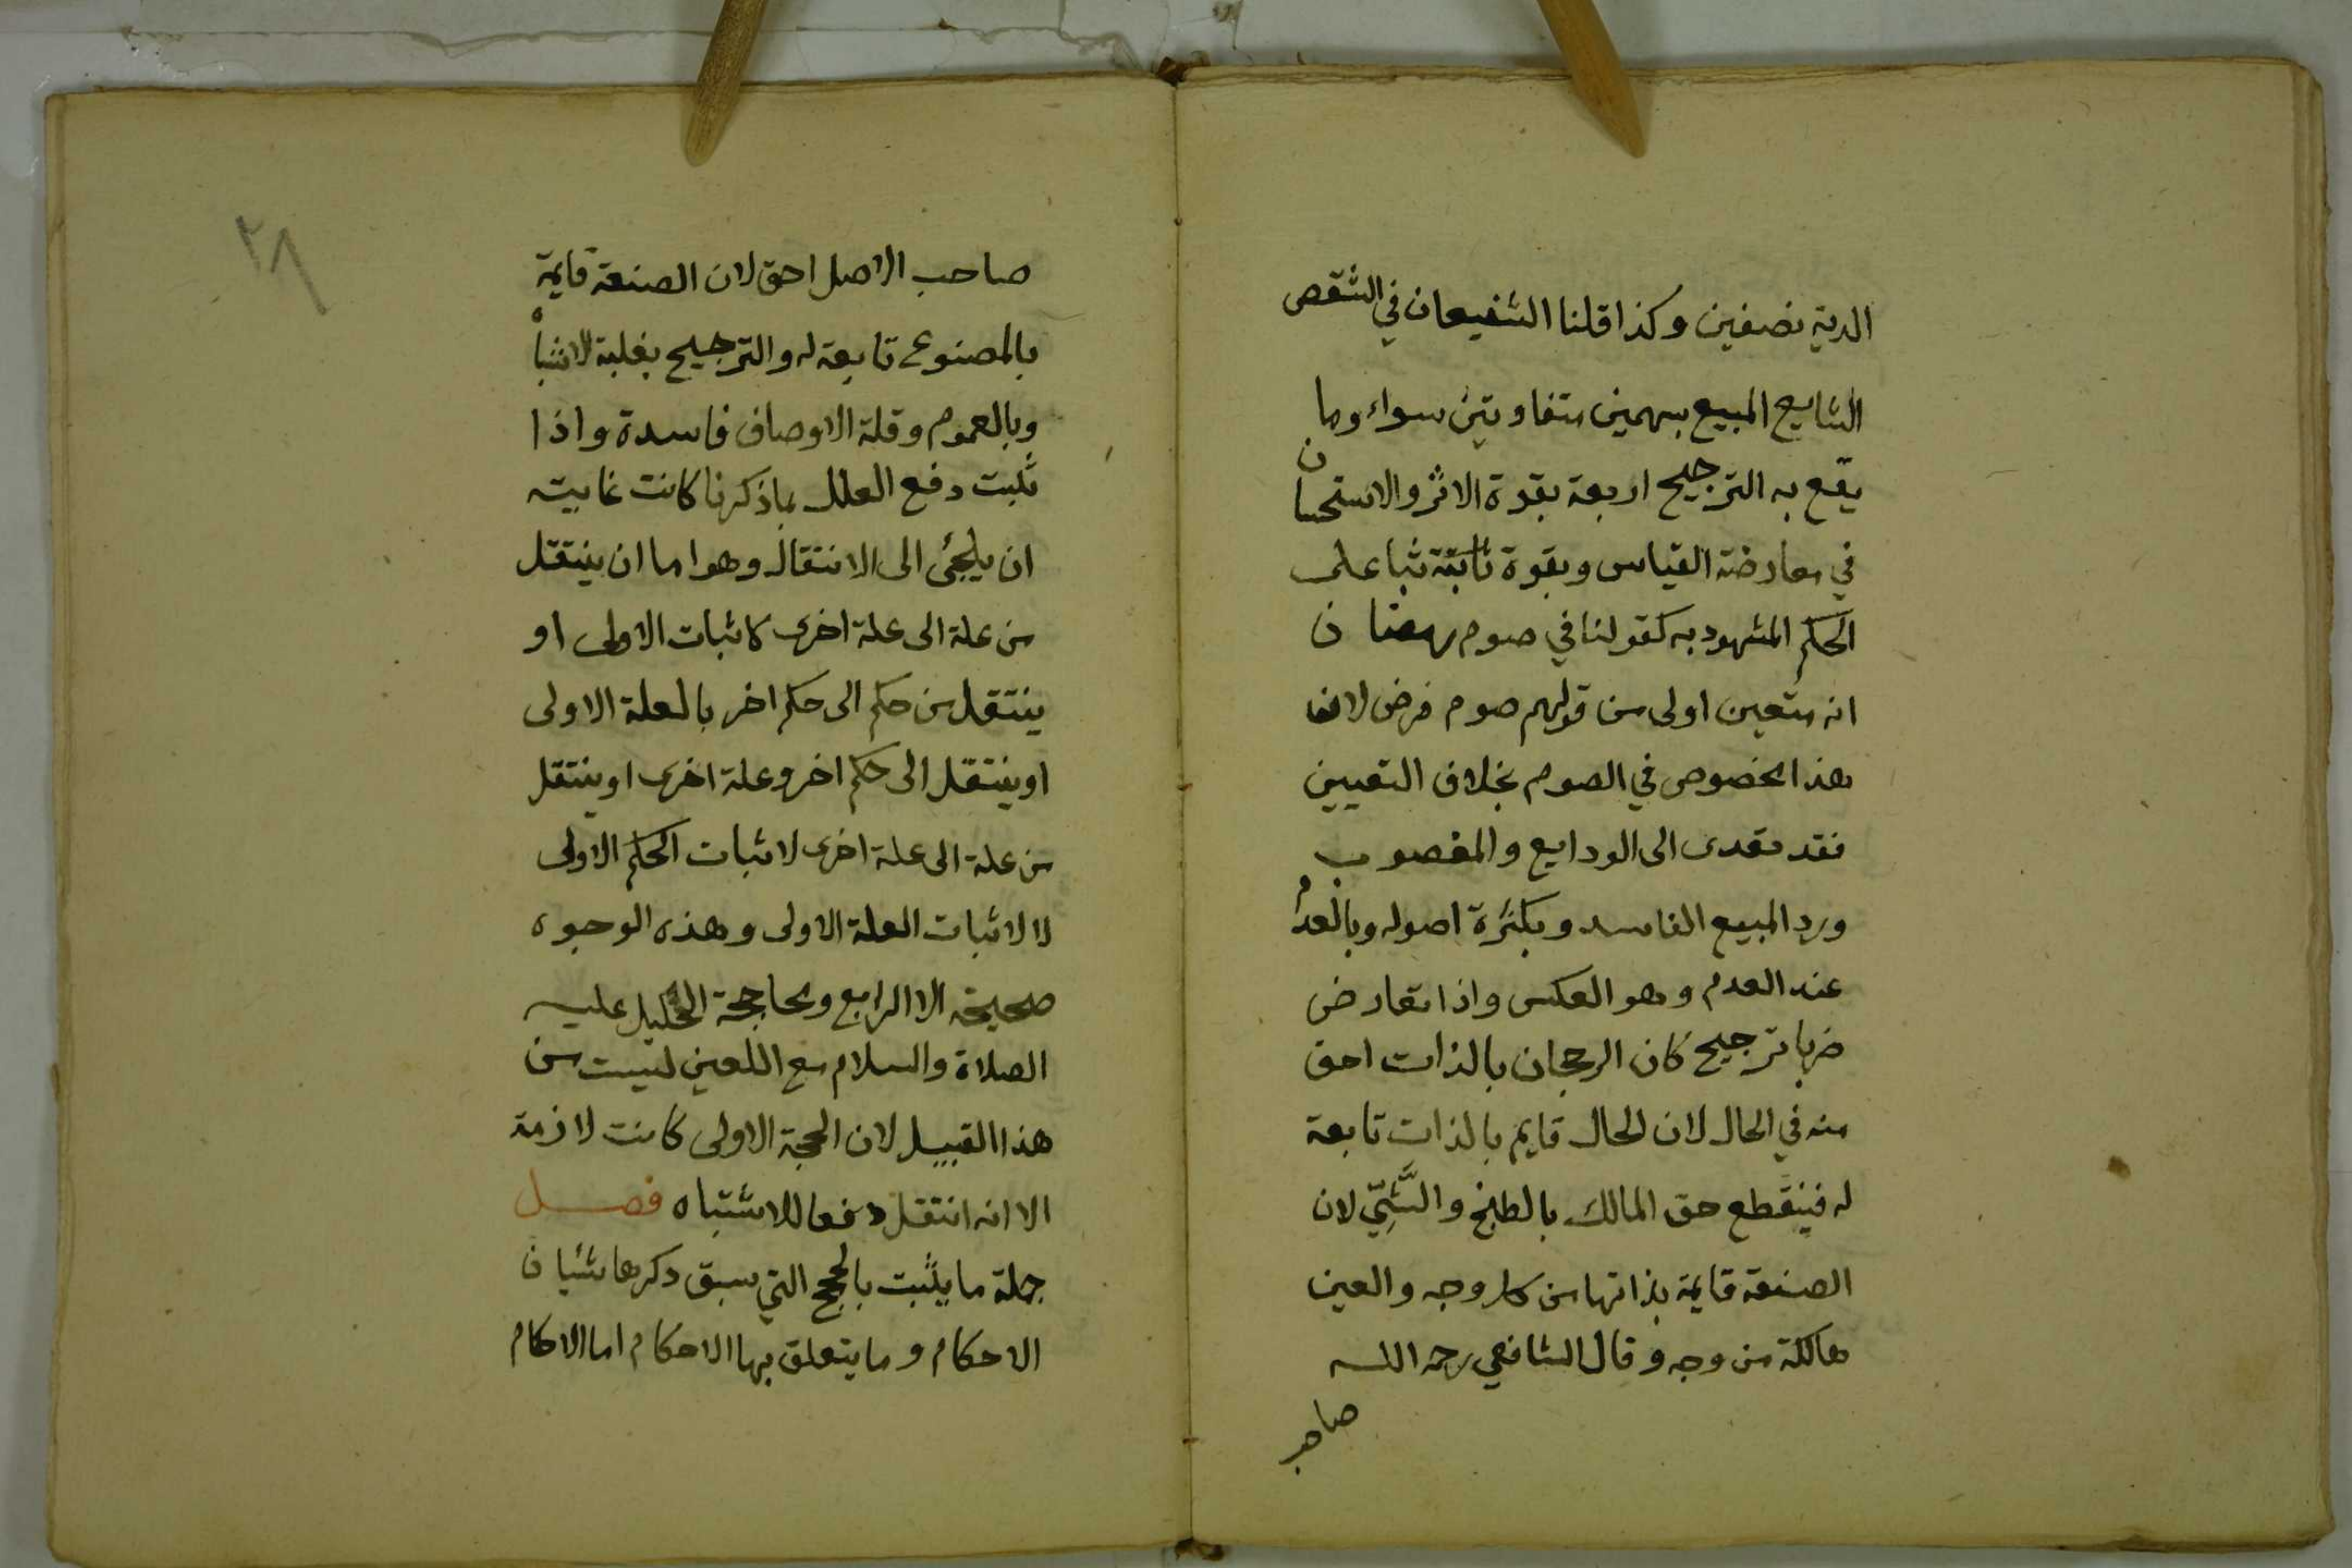 الدية نصفين وكذا قلنا الشفيعان في الشقص
الشايع المبيع بسهمين متفاوتين سواء وما
يقع به الترجيح اربعة بقوة الاثر والاستحسان
في معارضة القياس وبقوة ثباته على
الحكم المشهود به كقولنا في صوم رمضان
انه متعين اولى من قولهم صوم فرض لان
هذا الخصوص في الصوم بخلاف التعيين
فقد تعدى الى الودايع والمغصوب
ورد المبيع الفاسد وبكثرة اصوله وبالعدم
عند العدم وهو العكس واذا تعارض
ضربا ترجيح كان الرجحان بالذات احق
منه في الحال لان الحال قايم بالذات تابعة
له فينقطع حق المالك بالطبخ والشَّيِّ لان
الصنعة قايمة بذاتها من كل وجه والعين
هالكة من وجه وقال الشافعي رحمه الله
صاحب
٢٨
صاحب الاصل احق لان الصنعة قايمة
بالمصنوع تابعة له والترجيح بغلبة الاشباه
وبالعموم وقلة الاوصاف فاسدة واذا
ثبت دفع العلل بما ذكرنا كانت غايته
ان يلجئ الى الانتقال وهو اما ان ينتقل
من علة الى علة اخرى كاثبات الاولى او
ينتقل من حكم الى حكم اخر بالعلة الاولى
او ينتقل الى حكم اخر وعلة اخرى او ينتقل
من علة الى علة اخرى لاثبات الحكم الاولى
لا لاثبات العلة الاولى وهذه الوجوه
صحيحة الا الرابع ومحاججة الخليل عليه
الصلاة والسلام مع اللعين ليست من
هذا القبيل لان الحجة الاولى كانت لازمة
الا انه انتقل دفعا للاشتباه فصل
جملة ما يثبت بالحجج التي سبق ذكرها شيان
الاحكام وما يتعلق بها الاحكام اما الاحكام